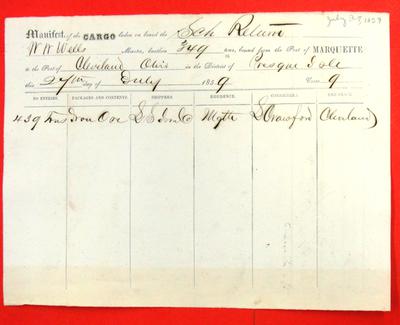 July 27, 1859
Manifest of the CARGO laden on board the Sch Return
W W Wells Master, burthen 349 tons, bound from the Port of MARQUETTE
to the Port of Cleveland Ohio in the District of Presque Isle
this 27th day of July 1859
NO. ENTRIES. PACKAGES AND CONTENTS. SHIPPERS. RESIDENCE. CONSIGNEES. RESIDENCE.
439 Tons Iron Ore L S Iron Co Mqtte S Crawford Cleveland